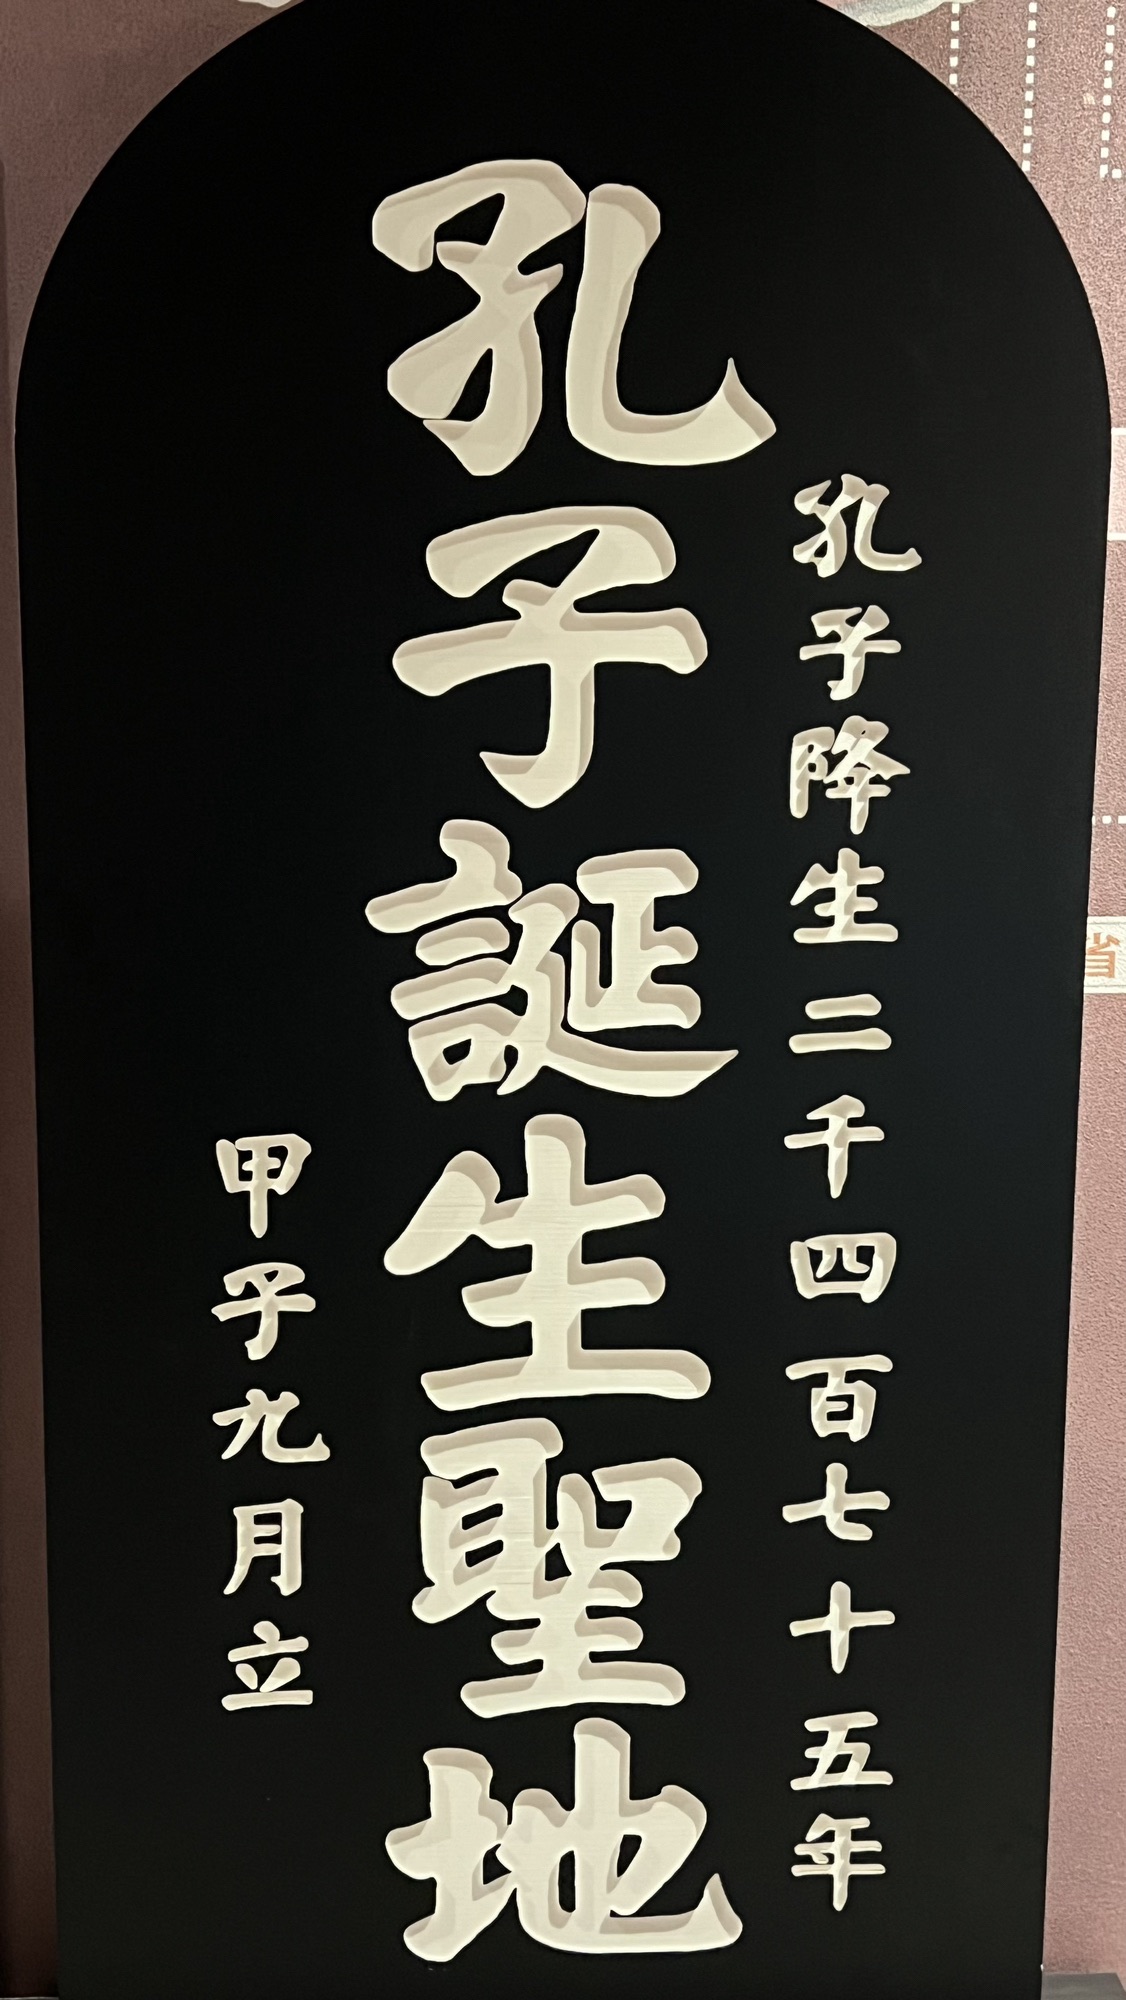 孔子降生二千四百七十五年
孔子誕生聖地
甲子九月立